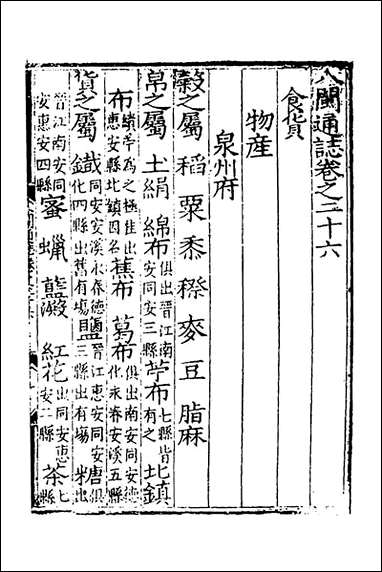 八閩通誌卷之二十六
食貨
物産
泉州府
穀之屬 稻 粟 黍 穄 麥 豆 脂麻
帛之屬 土絹 綿布俱出晉江南安同安三縣 苧布七縣皆有之 北鎮
布績苧為之極佳出惠安縣北鎮因名 蕉布 葛布俱出南安同安德化永春安溪五縣
貨之屬 鐵同安安溪永春德化四縣出舊有塲 鹽晉江惠安同安三縣出有塲 糖俱出
晉江南安同安惠安四縣 蜜 蠟 藍澱 紅花出同安惠安二縣 茶七縣